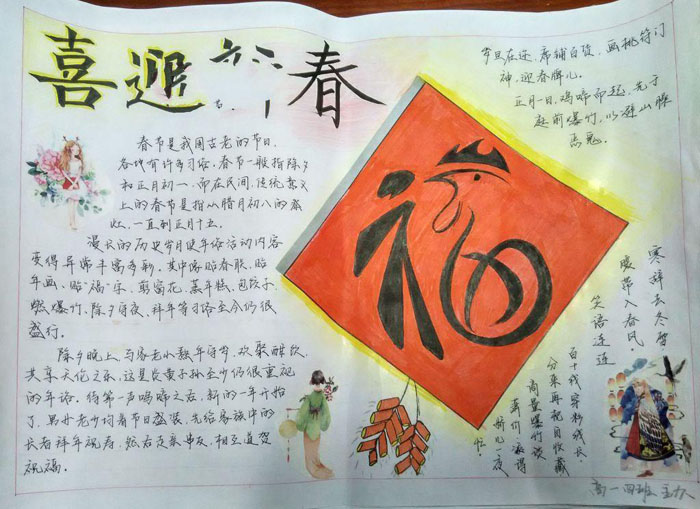 喜迎新春
春节是我国古老的节日，
各地有许多习俗，春节一般指除夕
和正月初一，而在民间，传统意义
上的春节是指从腊月初八的腊
祭，一直到正月十五。
漫长的历史岁月使年俗活动内容
变得异常丰富多彩。其中像贴春联、贴
年画、贴"福"字、剪窗花、蒸年糕、包饺子、
燃爆竹、除夕守夜、拜年等习俗至今仍很
盛行。
除夕晚上，与家老小熬年守岁，欢聚酣饮，
共享天伦之乐，这是炎黄子孙至今仍很重视
的年俗。待第一声鸡啼之后，新的一年开始
了，男女老少均着节日盛装，先给家族中的
长者拜年祝寿，然后走亲串友，相互道贺
祝福。
岁旦在迩，席铺百货，画桃符门
神，迎春牌儿。
正月一日，鸡啼而起，先于
庭前爆竹，以避山臊
恶鬼。
福
寒辞去冬雪
暖带入春风。
笑语连连
百十钱
分来再把自收藏
商量爆竹谈
新儿一夜
忙。
高一四班